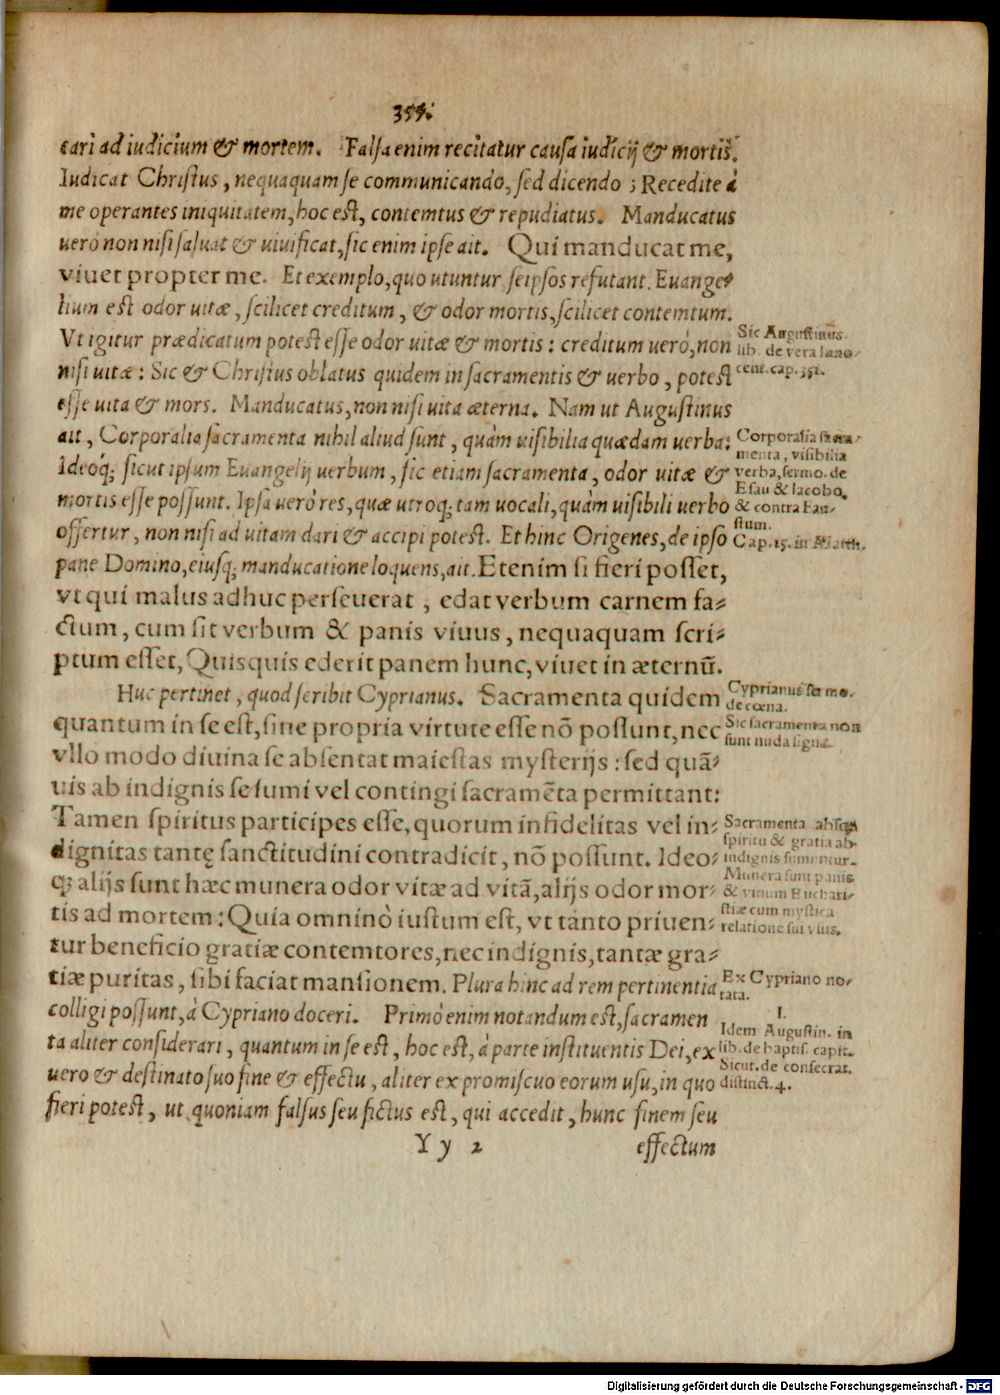 355.
cari ad iudicium & mortem. Falsa enim recitatur causa iudicij & mortis.
Iudicat Christus, nequaquam se communicando, sed dicendo; Recedite à
me operantes iniquitatem, hoc est, contemtus & repudiatus. Manducatus
uerò non nisi saluat & uiuificat, sic enim ipse ait. Qui manducat me,
viuet propter me. Et exemplo, quo utuntur seipsos refutant. Euange⸗
lium est odor uitæ, scilicet creditum, & odor mortis, scilicet contemtum.
Vt igitur prædicatum potest esse odor uitæ & mortis: creditum uerò, non
nisi uitæ: Sic & Christus oblatus quidem in sacramentis & uerbo, potest
esse uita & mors. Manducatus, non nisi uita æterna. Nam ut Augustinus
ait, Corporalia sacramenta nihil aliud sunt, quàm uisibilia quædam uerba:
Ideoq; sicut ipsum Euangelij uerbum, sic etiam sacramenta, odor uitæ &
mortis esse possunt. Ipsa uerò res, quæ utroq; tam uocali, quàm uisibili uerbo
offertur, non nisi ad uitam dari & accipi potest. Et hinc Origenes, de ipso
pane Domino, eiusq; manducatione loquens, ait. Etenim si fieri posset,
vt qui malus adhuc perseuerat, edat verbum carnem fa⸗
ctum, cum sit verbum & panis viuus, nequaquam scri⸗
ptum esset, Quisquis ederit panem hunc, viuet in æternũ.
Huc pertinet, quod scribit Cyprianus. Sacramenta quidem
quantum in se est, sine propria virtute esse nõ possunt, nec
vllo modo diuina se absentat maiestas mysterijs: sed quã⸗
uis ab indignis se sumi vel contingi sacramẽta permittant:
Tamen spiritus participes esse, quorum infidelitas vel in⸗
dignitas tantę sanctitudini contradicit, nõ possunt. Ideo⸗
q; alijs sunt hæc munera odor vitæ ad vitã, alijs odor mor⸗
tis ad mortem: Quia omninò iustum est, vt tanto priuen⸗
tur beneficio gratiæ contemtores, nec indignis, tantæ gra⸗
tiæ puritas, sibi faciat mansionem. Plura hinc ad rem pertinentia
colligi possunt, à Cypriano doceri. Primò enim notandum est, sacramen
ta aliter considerari, quantum in se est, hoc est, à parte instituentis Dei, ex
uero & destinato suo fine & effectu, aliter ex promiscuo eorum usu, in quo
fieri potest, ut quoniam falsus seu fictus est, qui accedit, hunc finem seu
Y y 2
effectum
Sic Augustinus.
lib. de vera Inno⸗
cent. cap. 351.
Corporalia sacra⸗
menta, visibilia
verba, sermo. de
Esau & Iacobo,
& contra Fau⸗
stum.
Cap. 15. in Matth.
Cyprianus sermo.
de cœna.
Sic sacramenta non
sunt nuda signa.
Sacramenta absq;
spiritu & gratia ab⸗
indignis sumuntur.
Munera sunt panis
& vinum Euchari⸗
stiæ cum mystica
relatione sui vsus.
Ex Cypriano no⸗
tata.
I.
Idem Augustin. in
lib. de baptis. capit.
Sicut. de consecrat.
distinct. 4.
Digitalisierung gefördert durch die Deutsche Forschungsgemeinschaft - DFG